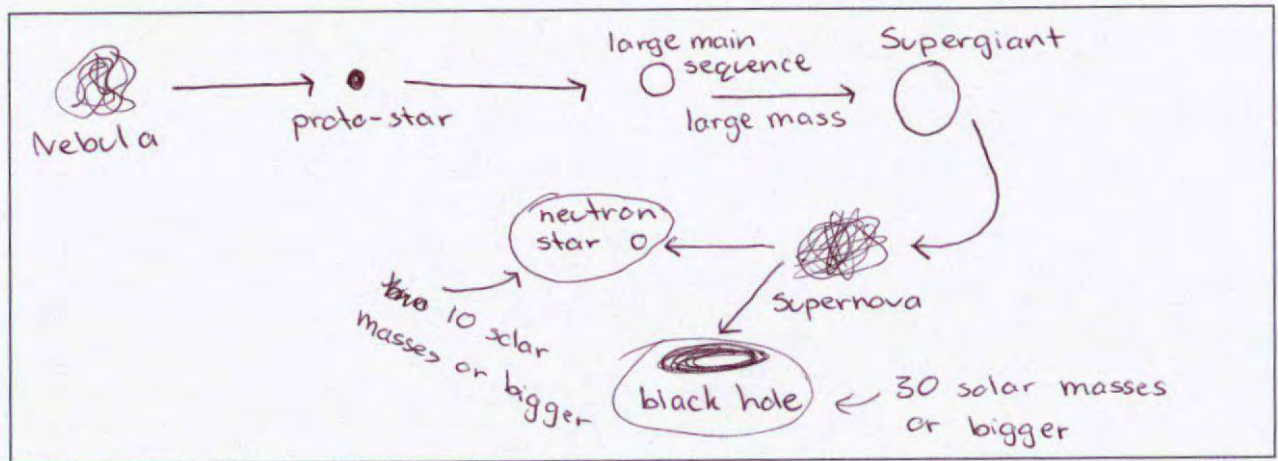 Nebula
proto-star
large main
sequence
large mass
Supergiant
neutron
star
10 solar
masses or bigger
Supernova
black hole
30 solar masses
or bigger